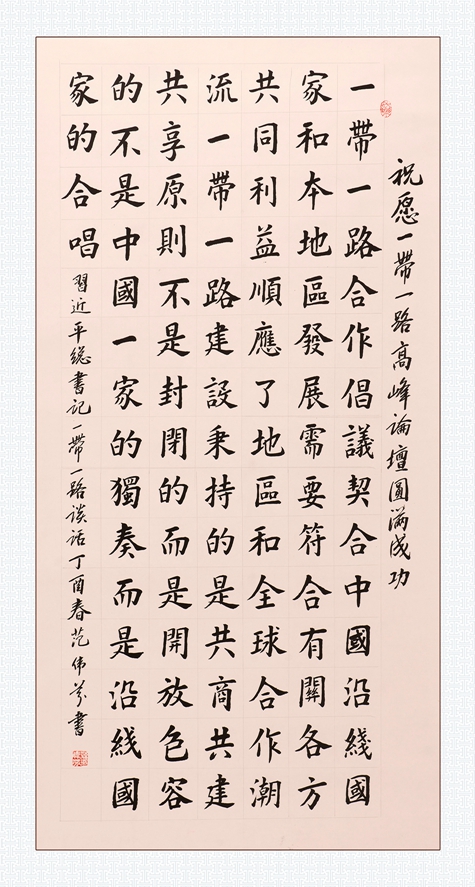 祝愿一帶一路高峰论壇圆满成功
一帶一路合作倡議契合中國沿綫國
家和本地區發展需要符合有關各方
共同利益順應了地區和全球合作潮
流一帶一路建設秉持的是共商共建
共享原則不是封閉的而是開放色容
的不是中國一家的獨奏而是沿綫國
家的合唱 習近平總書记一帶一路谈话丁酉春范伟芬書